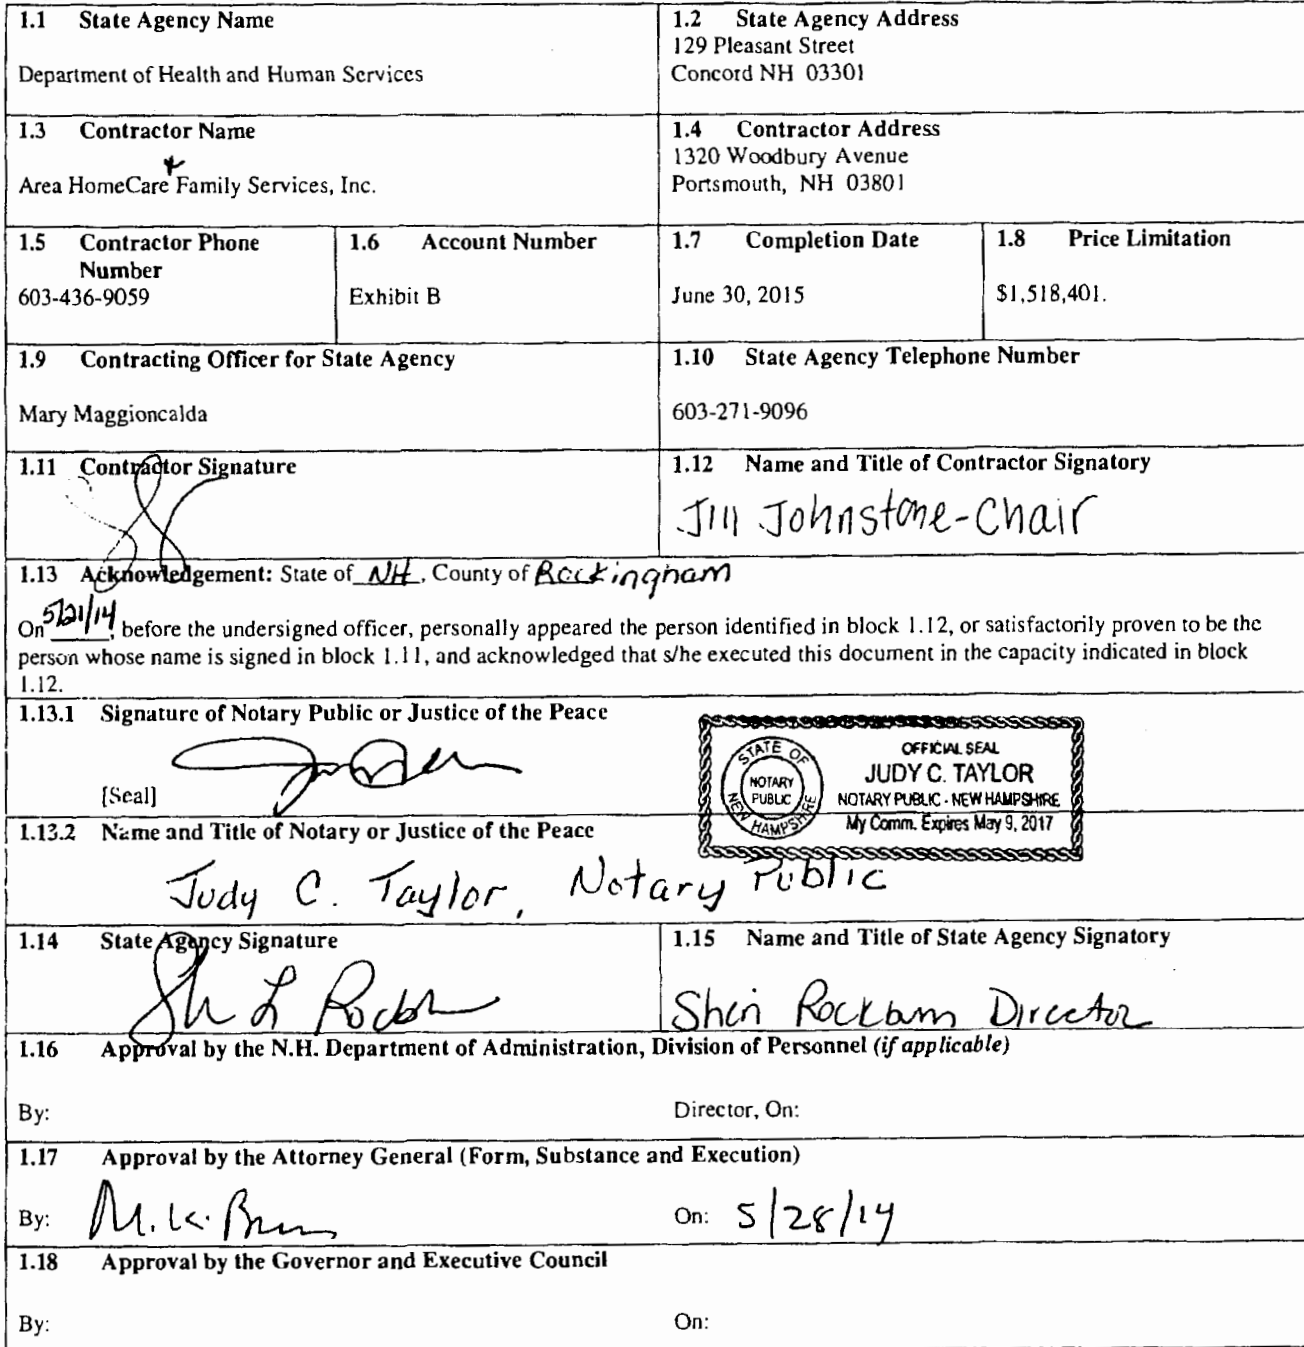 1.1 State Agency Name
Department of Health and Human Services
1.2 State Agency Address
129 Pleasant Street
Concord NH 03301
1.3 Contractor Name
Area HomeCare & Family Services, Inc.
1.4 Contractor Address
1320 Woodbury Avenue
Portsmouth, NH 03801
1.5 Contractor Phone
Number
603-436-9059
1.6 Account Number
Exhibit B
1.7 Completion Date
June 30, 2015
1.8 Price Limitation
$1,518,401.
1.9 Contracting Officer for State Agency
Mary Maggioncalda
1.10 State Agency Telephone Number
603-271-9096
1.11 Contractor Signature
1.12 Name and Title of Contractor Signatory
Jill Johnstone-Chair
1.13 Acknowledgement: State of NH, County of Rockingham
On 5/21/14, before the undersigned officer, personally appeared the person identified in block 1.12, or satisfactorily proven to be the
person whose name is signed in block 1.11, and acknowledged that s/he executed this document in the capacity indicated in block
1.12.
1.13.1 Signature of Notary Public or Justice of the Peace
[Seal]
STATE OF NEW HAMPSHIRE
NOTARY
PUBLIC
OFFICIAL SEAL
JUDY C. TAYLOR
NOTARY PUBLIC - NEW HAMPSHIRE
My Comm. Expires May 9, 2017
1.13.2 Name and Title of Notary or Justice of the Peace
Judy C. Taylor, Notary Public
1.14 State Agency Signature
1.15 Name and Title of State Agency Signatory
Sheri Rockburn Director
1.16 Approval by the N.H. Department of Administration, Division of Personnel (if applicable)
By:
Director, On:
1.17 Approval by the Attorney General (Form, Substance and Execution)
By:
On: 5/28/14
1.18 Approval by the Governor and Executive Council
By:
On: